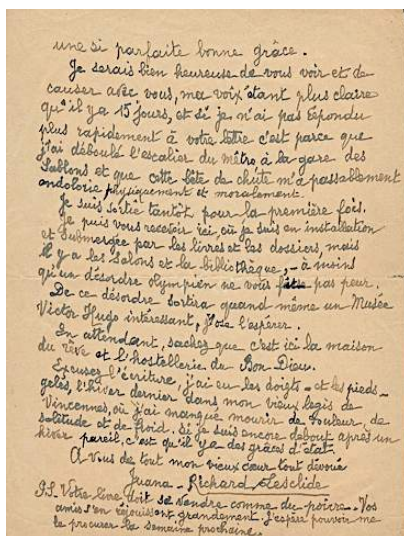 une si parfaite bonne grâce.
Je serais bien heureuse de vous voir et de
causer avec vous, ma voix étant plus claire
qu'il y a 15 jours, et si je n'ai pas répondu
plus rapidement à votre lettre c'est parce que
j'ai déboulé l'escalier du métro à la gare des
Sablons et que cette bête de chute m'a passablement
endolorie physiquement et moralement.
Je suis sortie tantôt pour la première fois.
Je puis vous recevoir ici, où je suis en installation
et submergée par les livres et les dossiers, mais
il y a les salons et la bibliothèque, - à moins
qu'un désordre olympien ne vous fasse pas peur.
De ce désordre sortira quand même un Musée
Victor Hugo intéressant, j'ose l'espérer.
En attendant, sachez que c'est ici la maison
du rêve et l'hostellerie du Bon Dieu.
Excusez l'écriture, j'ai eu les doigts - et les pieds -
gelés, l'hiver dernier dans mon vieux logis de
Vincennes, où j'ai manqué mourir de douleur, de
solitude et de froid. Si je suis encore debout après un
hiver pareil, c'est qu'il y a des grâces d'état.
A vous de tout mon vieux cœur tout dévoué
Juana - Richard Lesclide
P.S. Votre livre doit se vendre comme du poivre. Vos
amis s'en réjouissent grandement. J'espère pouvoir me
le procurer la semaine prochaine.